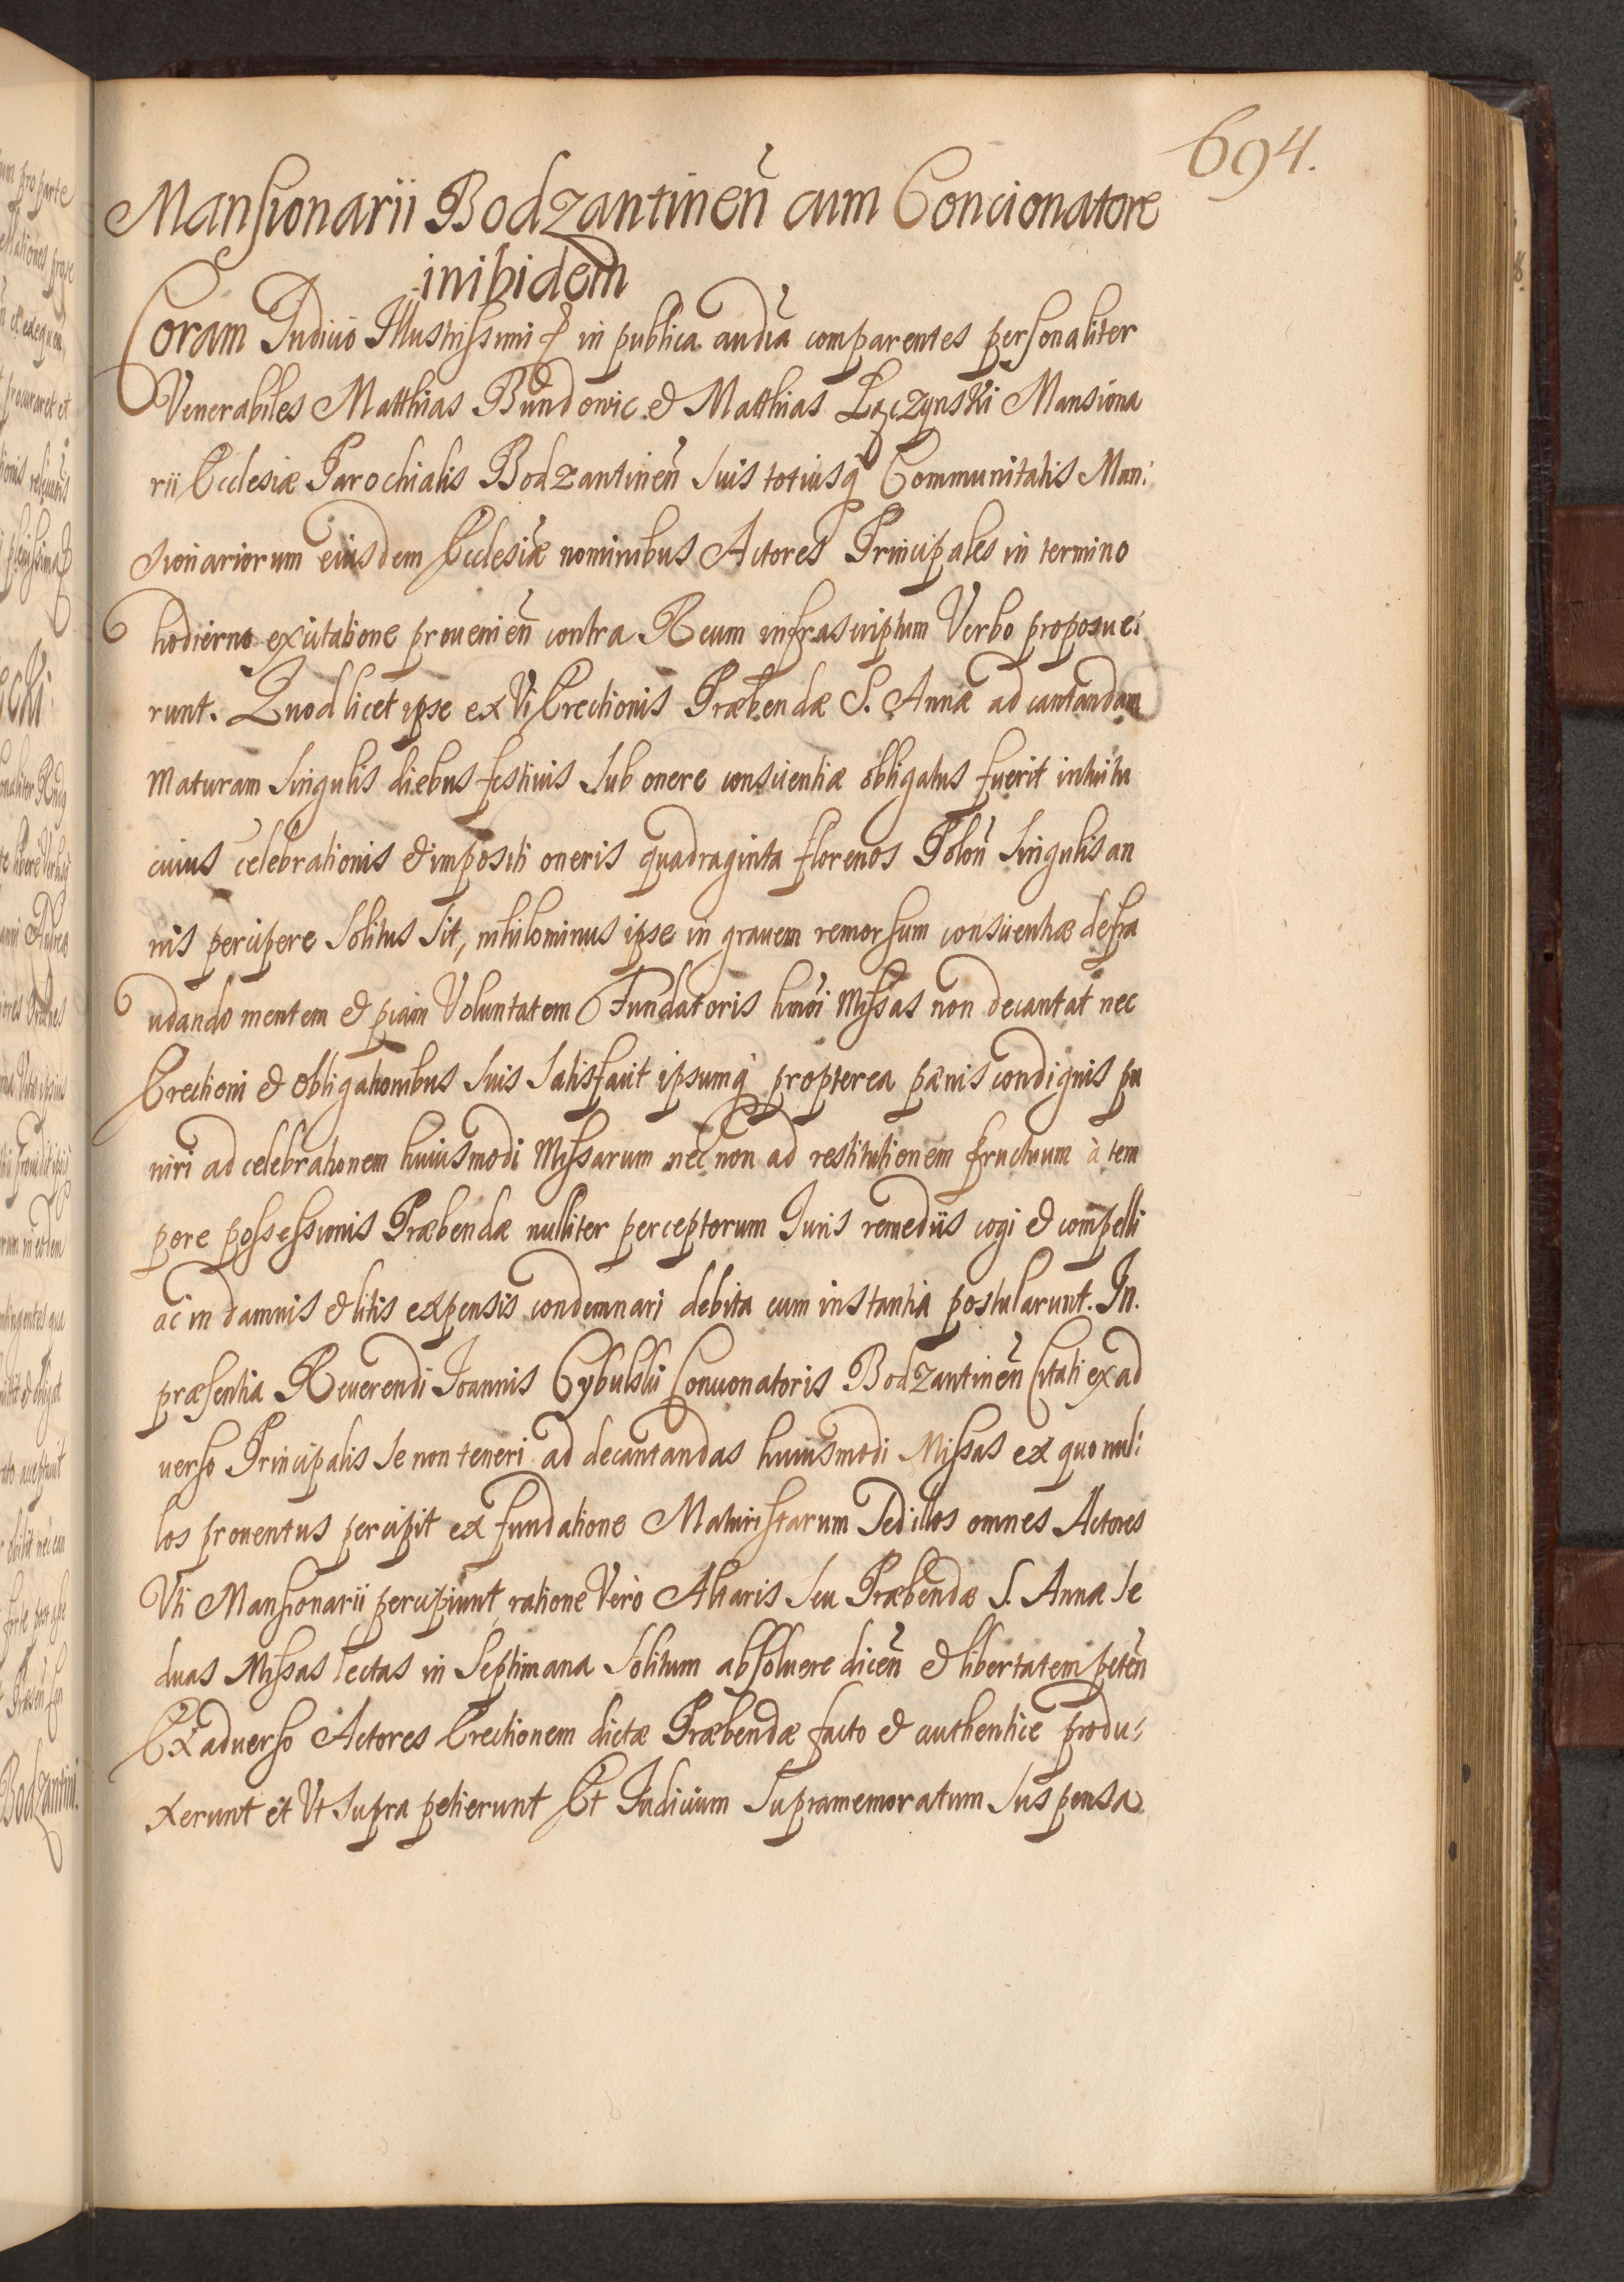 694.
Mansionarii Bodzantinen̄ cum Concionatore
inibidem
Coram Judicio Illustrissimi & in publica audīa comparentes personaliter
Venerabiles Matthias Bundowic & Matthias Łączynski Mansiona
rii Ecclesiæ Parochialis Bodzantinen̄ suis totiusq̄ Communitatis Man:
sionariorum eiusdem Ecclesiæ nominibus Actores Principales in termino
hodierno ex citatione prouenien̄ contra Reum infrascriptum Verbo proposue:
runt. Quod licet ipse ex Vi Erectionis Præbendæ S. Annæ ad cantandam
maturam singulis diebus festiuis sub onere conscientiæ obligatus fuerit intuitu
cuius celebrationis & impositi oneris quadraginta florenos Polon̄ singulis an
nis percipere solitus sit, nihilominus ipse in grauem remorsum conscientiæ defra
udando mentem & piam Voluntatem Fundatoris hmōi Missas non decantat nec
Erectioni & obligationibus suis satisfacit ipsumq̄ propterea pænis condignis pu
niri ad celebrationem huiusmodi Missarum nec non ad restitutionem fructuum à tem
pore possessionis Præbendæ nulliter perceptorum Juris remediis cogi & compelli
ac in damnis & litis expensis condemnari debita cum instantia postularunt. In.
præsentia Reuerendi Joannis Cybulskii Concionatoris Bodzantinen̄ Citati ex ad
uerso Principalis se non teneri ad decantandas huiusmodi Missas ex quo nul:
los prouentus percipit ex fundatione Maturistarum sed illos omnes Actores
Vti Mansionarii percipiunt, ratione Verò Altaris seu Præbendæ S. Annæ se
duas Missas lectas in septimana solitum absoluere dicen̄ & libertatem peten̄
Ex aduerso Actores Erectionem dictæ Præbendæ facto & authentice produ:
xerunt et Vt supra petierunt Et Judicium supramemoratum suspensa